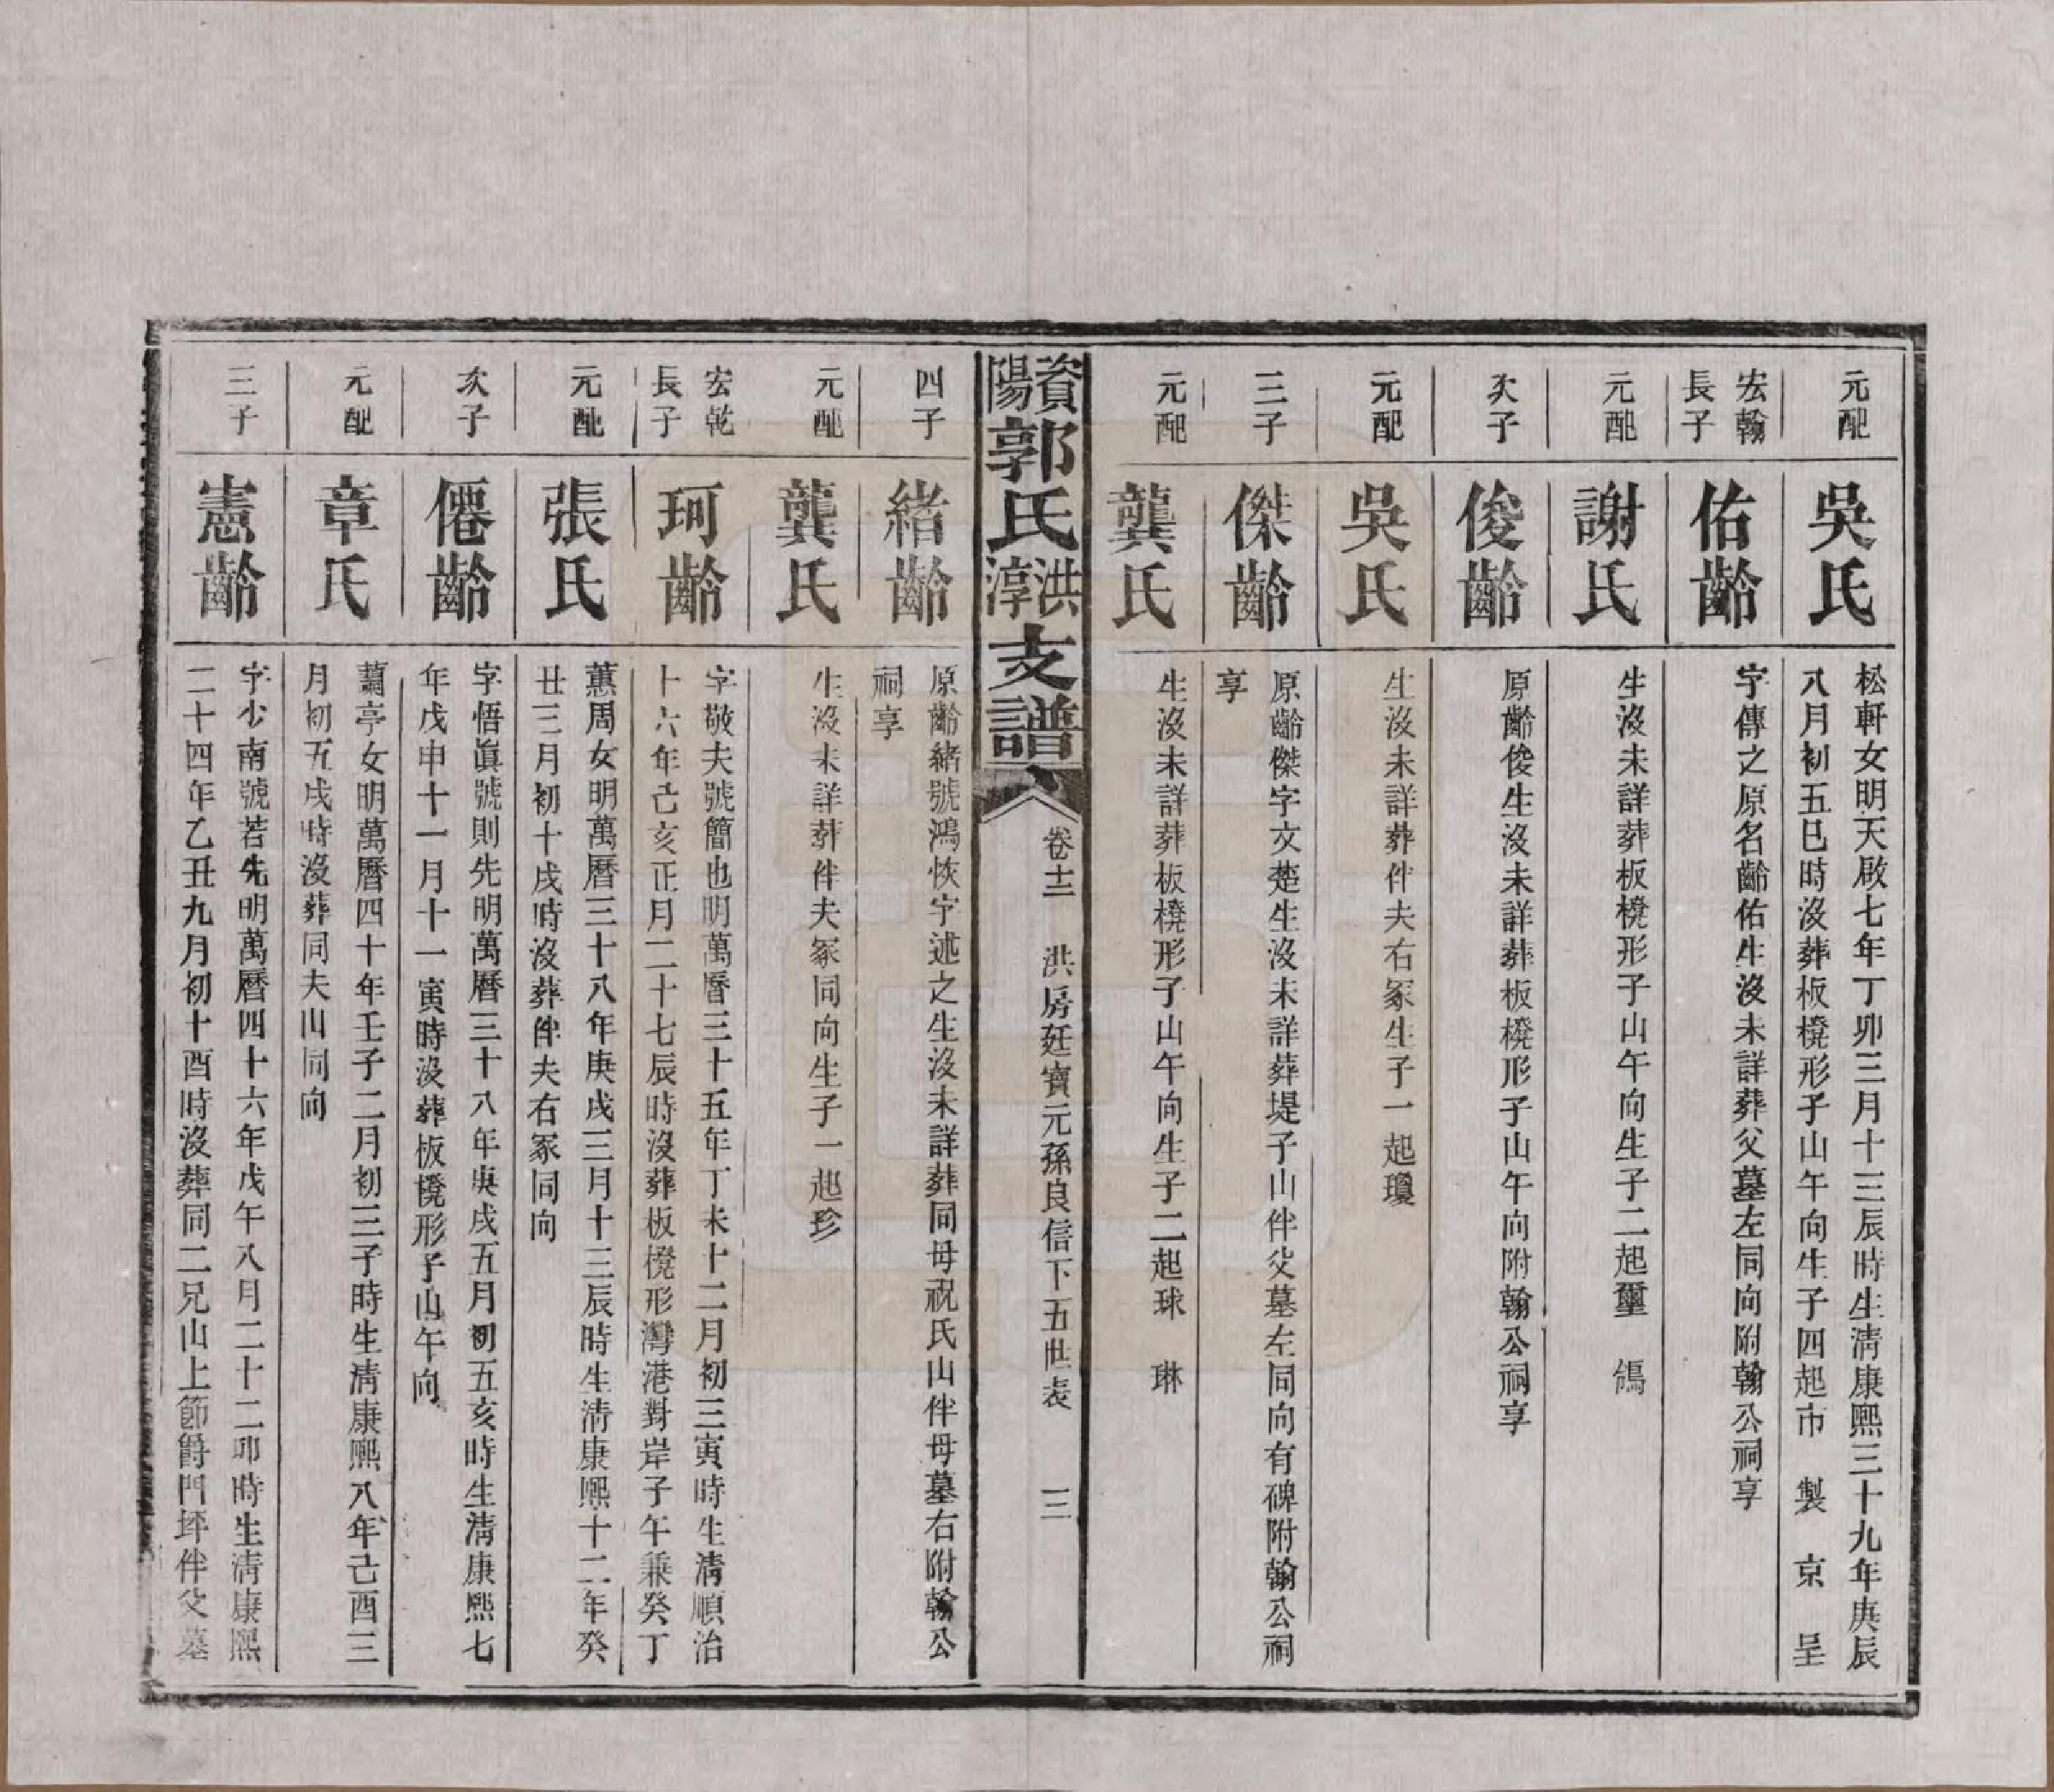 元配
吳氏
松軒女明天啟七年丁卯三月十三辰時生清康熙三十九年庚辰
八月初五巳時沒葬板櫈形子山午向生子四起市 製 京 呈
宏翰
長子
佑齡
字傳之原名齡佑生沒未詳葬父墓左同向附翰公祠享
元配
謝氏
生沒未詳葬板櫈形子山午向生子二起璽 鴿
次子
俊齡
原齡俊生沒未詳葬板櫈形子山午向附翰公祠享
元配
吳氏
生沒未詳葬伴夫右冢生子一起瓊
三子
傑齡
原齡傑字文楚生沒未詳葬堤子山伴父墓左同向有碑附翰公祠
享
元配
龔氏
生沒未詳葬板櫈形子山午向生子二起球 琳
資陽郭氏洪淳支譜
卷十二 洪房廷寶元孫良信下五世表 三
四子
緒齡
原齡緒號鴻恢字述之生沒未詳葬同母祝氏山伴母墓右附翰公
祠享
元配
龔氏
生沒未詳葬伴夫冢同向生子一起珍
宏乾
長子
珂齡
字敬夫號簡也明萬曆三十五年丁未十二月初三寅時生清順治
十六年己亥正月二十七辰時沒葬板櫈形灣港對岸子午兼癸丁
元配
張氏
蕙周女明萬曆三十八年庚戌三月十三辰時生清康熙十二年癸
丑三月初十戌時沒葬伴夫右冢同向
次子
僊齡
字悟眞號則先明萬曆三十八年庚戌五月初五亥時生清康熙七
年戊申十一月十一寅時沒葬板櫈形子山午向
元配
章氏
蘭亭女明萬曆四十年壬子二月初三子時生清康熙八年己酉三
月初五戌時沒葬同夫山同向
三子
憲齡
字少南號若先明萬曆四十六年戊午八月二十二卯時生清康熙
二十四年乙丑九月初十酉時沒葬同二兄山上節爵門坪伴父墓